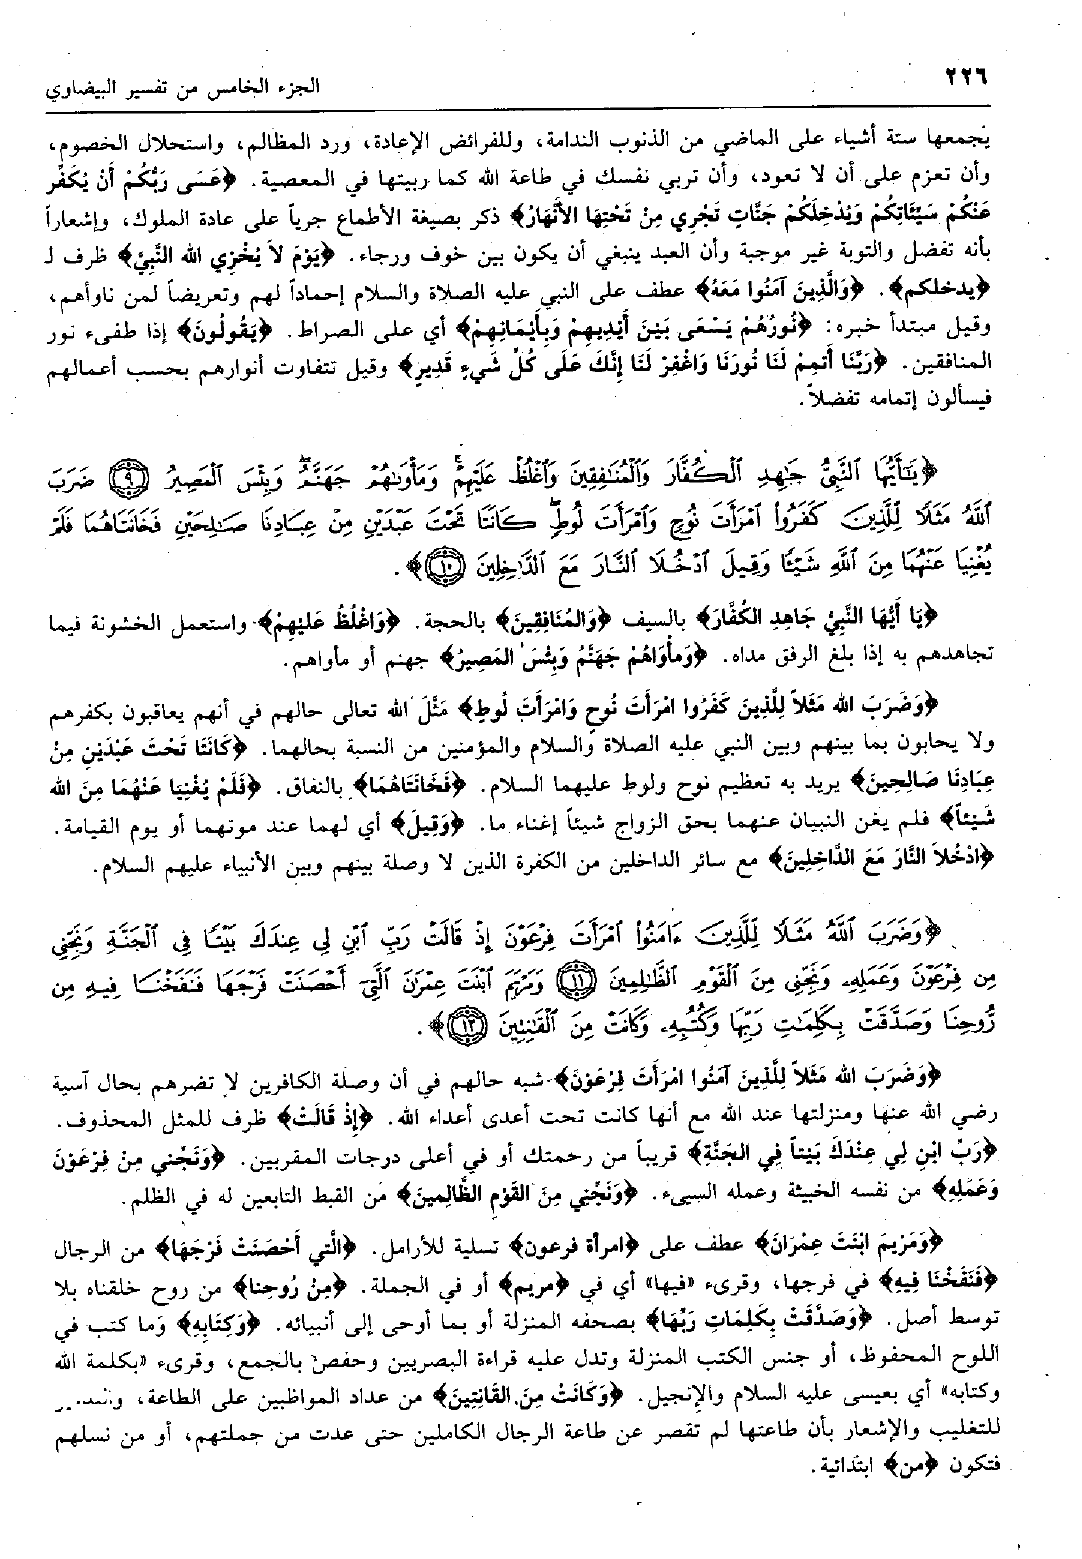 ٢٢٦
الجزء الخامس من تفسير البيضاوي
يجمعها ستة أشياء على الماضي من الذنوب الندامة، وللفرائض الإعادة، ورد المظالم، واستحلال الخصوم،
وأن تعزم على أن لا تعود، وأن تربي نفسك في طاعة الله كما ربيتها في المعصية. ﴿عَسَى رَبُّكُمْ أَنْ يُكَفِّرَ
عَنْكُمْ سَيِّئَاتِكُمْ وَيُدْخِلَكُمْ جَنَّاتٍ تَجْرِي مِنْ تَحْتِهَا الأَنْهَارُ﴾ ذكر بصيغة الأطماع جرياً على عادة الملوك، وإشعاراً
بأنه تفضل والتوبة غير موجبة وأن العبد ينبغي أن يكون بين خوف ورجاء. ﴿يَوْمَ لاَ يُخْزِي الله النَّبِيَّ﴾ ظرف لـ
﴿يدخلكم﴾. ﴿وَالَّذِينَ آمَنُوا مَعَهُ﴾ عطف على النبي عليه الصلاة والسلام إحماداً لهم وتعريضاً لمن ناوأهم،
وقيل مبتدأ خبره: ﴿نُورُهُمْ يَسْعَى بَيْنَ أَيْدِيهِمْ وَبِأَيْمَانِهِمْ﴾ أي على الصراط. ﴿يَقُولُونَ﴾ إذا طفىء نور
المنافقين. ﴿رَبَّنَا أَتْمِمْ لَنَا نُورَنَا وَاغْفِرْ لَنَا إِنَّكَ عَلَى كُلِّ شَيْءٍ قَدِيرٍ﴾ وقيل تتفاوت أنوارهم بحسب أعمالهم
فيسألون إتمامه تفضلاً.
﴿يَٰٓأَيُّهَا ٱلنَّبِيُّ جَٰهِدِ ٱلْكُفَّارَ وَٱلْمُنَٰفِقِينَ وَٱغْلُظْ عَلَيْهِمْ وَمَأْوَىٰهُمْ جَهَنَّمُ وَبِئْسَ ٱلْمَصِيرُ ٩ ضَرَبَ
ٱللَّهُ مَثَلًا لِّلَّذِينَ كَفَرُوا۟ ٱمْرَأَتَ نُوحٍ وَٱمْرَأَتَ لُوطٍ كَانَتَا تَحْتَ عَبْدَيْنِ مِنْ عِبَادِنَا صَٰلِحَيْنِ فَخَانَتَاهُمَا فَلَمْ
يُغْنِيَا عَنْهُمَا مِنَ ٱللَّهِ شَيْـًٔا وَقِيلَ ٱدْخُلَا ٱلنَّارَ مَعَ ٱلدَّٰخِلِينَ ١٠﴾.
﴿يَا أَيُّهَا النَّبِيُّ جَاهِدِ الكُفَّارَ﴾ بالسيف ﴿وَالمُنَافِقِينَ﴾ بالحجة. ﴿وَاغْلُظْ عَلَيهِمْ﴾ واستعمل الخشونة فيما
تجاهدهم به إذا بلغ الرفق مداه. ﴿وَمأْوَاهُمْ جَهَنَّمُ وَبِئْسَ المَصِيرُ﴾ جهنم أو مأواهم.
﴿وَضَرَبَ الله مَثَلاً لِلَّذِينَ كَفَرُوا امْرَأَتَ نُوحٍ وَامْرَأَتَ لُوطٍ﴾ مَثَّلَ الله تعالى حالهم في أنهم يعاقبون بكفرهم
ولا يحابون بما بينهم وبين النبي عليه الصلاة والسلام والمؤمنين من النسبة بحالهما. ﴿كَانَتَا تَحْتَ عَبْدَيْنِ مِنْ
عِبَادِنَا صَالِحِينَ﴾ يريد به تعظيم نوح ولوط عليهما السلام. ﴿فَخَانَتَاهُمَا﴾ بالنفاق. ﴿فَلَمْ يُغْنِيَا عَنْهُمَا مِنَ الله
شَيْئاً﴾ فلم يغن النبيان عنهما بحق الزواج شيئاً إغناء ما. ﴿وَقِيلَ﴾ أي لهما عند موتهما أو يوم القيامة.
﴿ادْخُلاَ النَّارَ مَعَ الدَّاخِلِينَ﴾ مع سائر الداخلين من الكفرة الذين لا وصلة بينهم وبين الأنبياء عليهم السلام.
﴿وَضَرَبَ ٱللَّهُ مَثَلًا لِّلَّذِينَ ءَامَنُوا۟ ٱمْرَأَتَ فِرْعَوْنَ إِذْ قَالَتْ رَبِّ ٱبْنِ لِى عِندَكَ بَيْتًا فِى ٱلْجَنَّةِ وَنَجِّنِى
مِن فِرْعَوْنَ وَعَمَلِهِۦ وَنَجِّنِى مِنَ ٱلْقَوْمِ ٱلظَّٰلِمِينَ ١١ وَمَرْيَمَ ٱبْنَتَ عِمْرَٰنَ ٱلَّتِىٓ أَحْصَنَتْ فَرْجَهَا فَنَفَخْنَا فِيهِ مِن
رُّوحِنَا وَصَدَّقَتْ بِكَلِمَٰتِ رَبِّهَا وَكُتُبِهِۦ وَكَانَتْ مِنَ ٱلْقَٰنِتِينَ ١٢﴾.
﴿وَضَرَبَ الله مَثَلاً لِلَّذِينَ آمَنُوا امْرَأَتَ فِرْعَوْنَ﴾ شبه حالهم في أن وصلة الكافرين لا تضرهم بحال آسية
رضي الله عنها ومنزلتها عند الله مع أنها كانت تحت أعدى أعداء الله. ﴿إِذْ قَالَتْ﴾ ظرف للمثل المحذوف.
﴿رَبِّ ابْنِ لِي عِنْدَكَ بَيْتاً فِي الجَنَّةِ﴾ قريباً من رحمتك أو في أعلى درجات المقربين. ﴿وَنَجِّنِي مِنْ فِرْعَوْنَ
وَعَمَلِهِ﴾ من نفسه الخبيثة وعمله السيىء. ﴿وَنَجِّنِي مِنَ القَوْمِ الظَّالِمينَ﴾ من القبط التابعين له في الظلم.
﴿وَمَرْيَمَ ابْنَتَ عِمْرَانَ﴾ عطف على ﴿امرأة فرعون﴾ تسلية للأرامل. ﴿الَّتِي أَحْصَنَتْ فَرْجَهَا﴾ من الرجال
﴿فَنَفَخْنَا فِيهِ﴾ في فرجها، وقرىء «فيها» أي في ﴿مريم﴾ أو في الجملة. ﴿مِنْ رُوحِنا﴾ من روح خلقناه بلا
توسط أصل. ﴿وَصَدَّقَتْ بِكَلِمَاتِ رَبِّهَا﴾ بصحفه المنزلة أو بما أوحى إلى أنبيائه. ﴿وَكِتَابِهِ﴾ وما كتب في
اللوح المحفوظ، أو جنس الكتب المنزلة وتدل عليه قراءة البصريين وحفص بالجمع، وقرىء «بكلمة الله
وكتابه» أي بعيسى عليه السلام والإنجيل. ﴿وَكَانَتْ مِنَ القَانِتِينَ﴾ من عداد المواظبين على الطاعة،
للتغليب والإشعار بأن طاعتها لم تقصر عن طاعة الرجال الكاملين حتى عدت من جملتهم، أو من نسلهم
فتكون ﴿من﴾ ابتدائية.